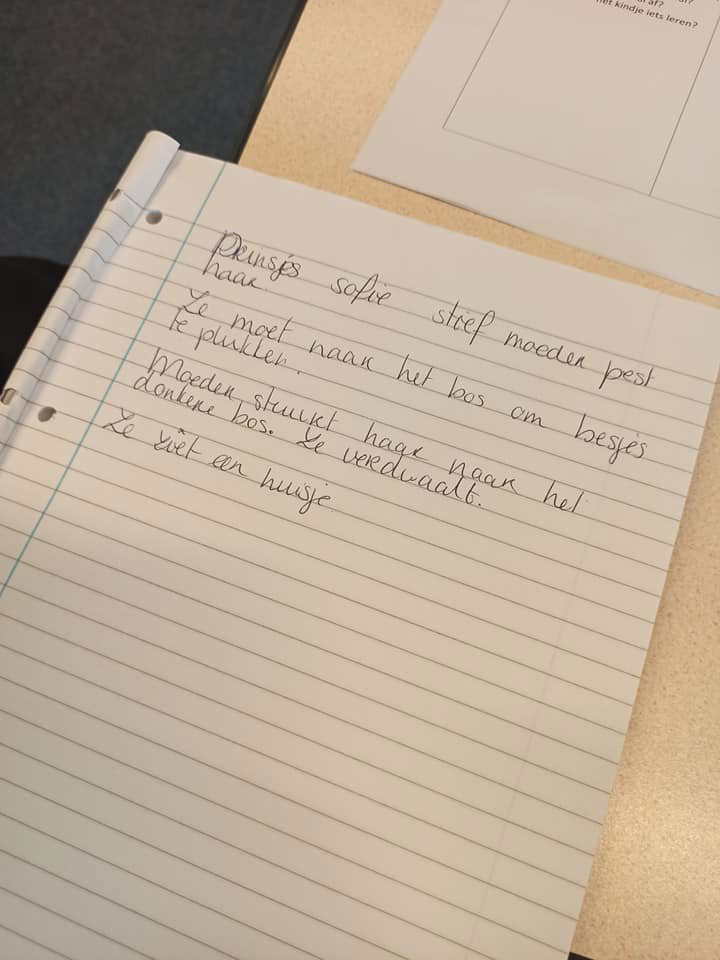 af?
het kindje iets leren?
Prinsjes sofie stief moeder pest
haar.
Ze moet naar het bos om besjes
te plukken.
Moeder stuurt haar naar het
donkere bos. Ze verdwaalt.
Ze ziet een huisje